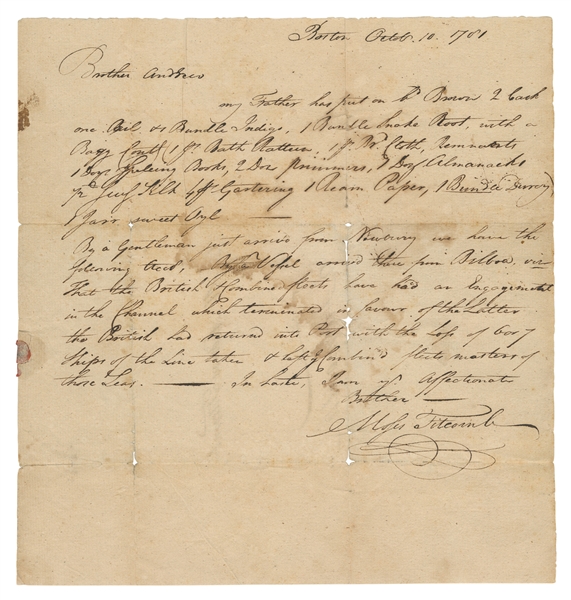 Boston Octob. 10. 1781
Brother Andrew
my Father has put on bd Brown 2 Cask
one Oil & Bundle Indigo, 1 Bundle Snake Root, with a
Bagg Contg 1 ps. Rattin, 1 ps. Cloth, Remnants
1 Doz. Spelling Books, 2 Doz primmers, Doz Almanacks
ps. Silk Gartering 1 Ream Paper, 1
1 Jarr sweet Oyl —
By a Gentleman just arrived from Newbury we have the
following Acct, By a Vessel arrived there from Bilboa, viz
That the British & Combined fleets have had an Engagement
in the Channel which terminated in favour of the Latter
the British had returned into Port with the Loss of 6 or 7
Ships of the Line taken & left ye Combin'd fleets masters of
those Seas. — In haste, I am yr Affectionate
Brother —
Moses Titcomb